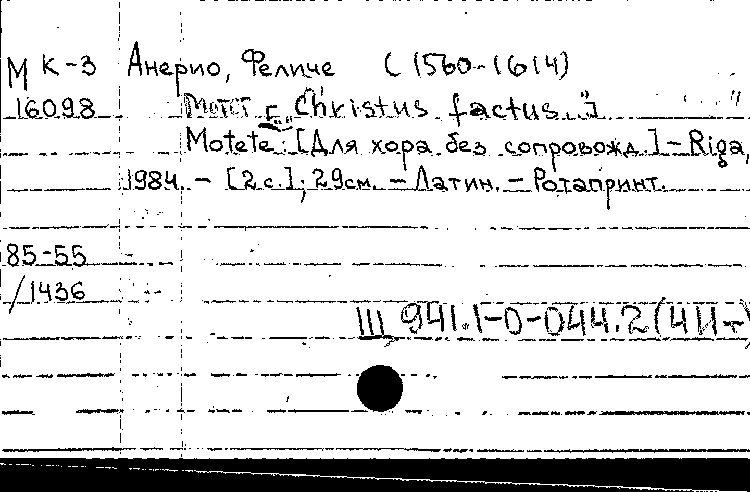 М К-3 Анерио, Феличе (1560-1614)
16098 Мотет ["Christus factus..."]
Motete: [Для хора без сопровожд.] - Riga,
1984. - [2 с.]; 29см. - Латин. - Ротапринт.
85-55
/1436
III 941.1-0-044.2(4И-т)